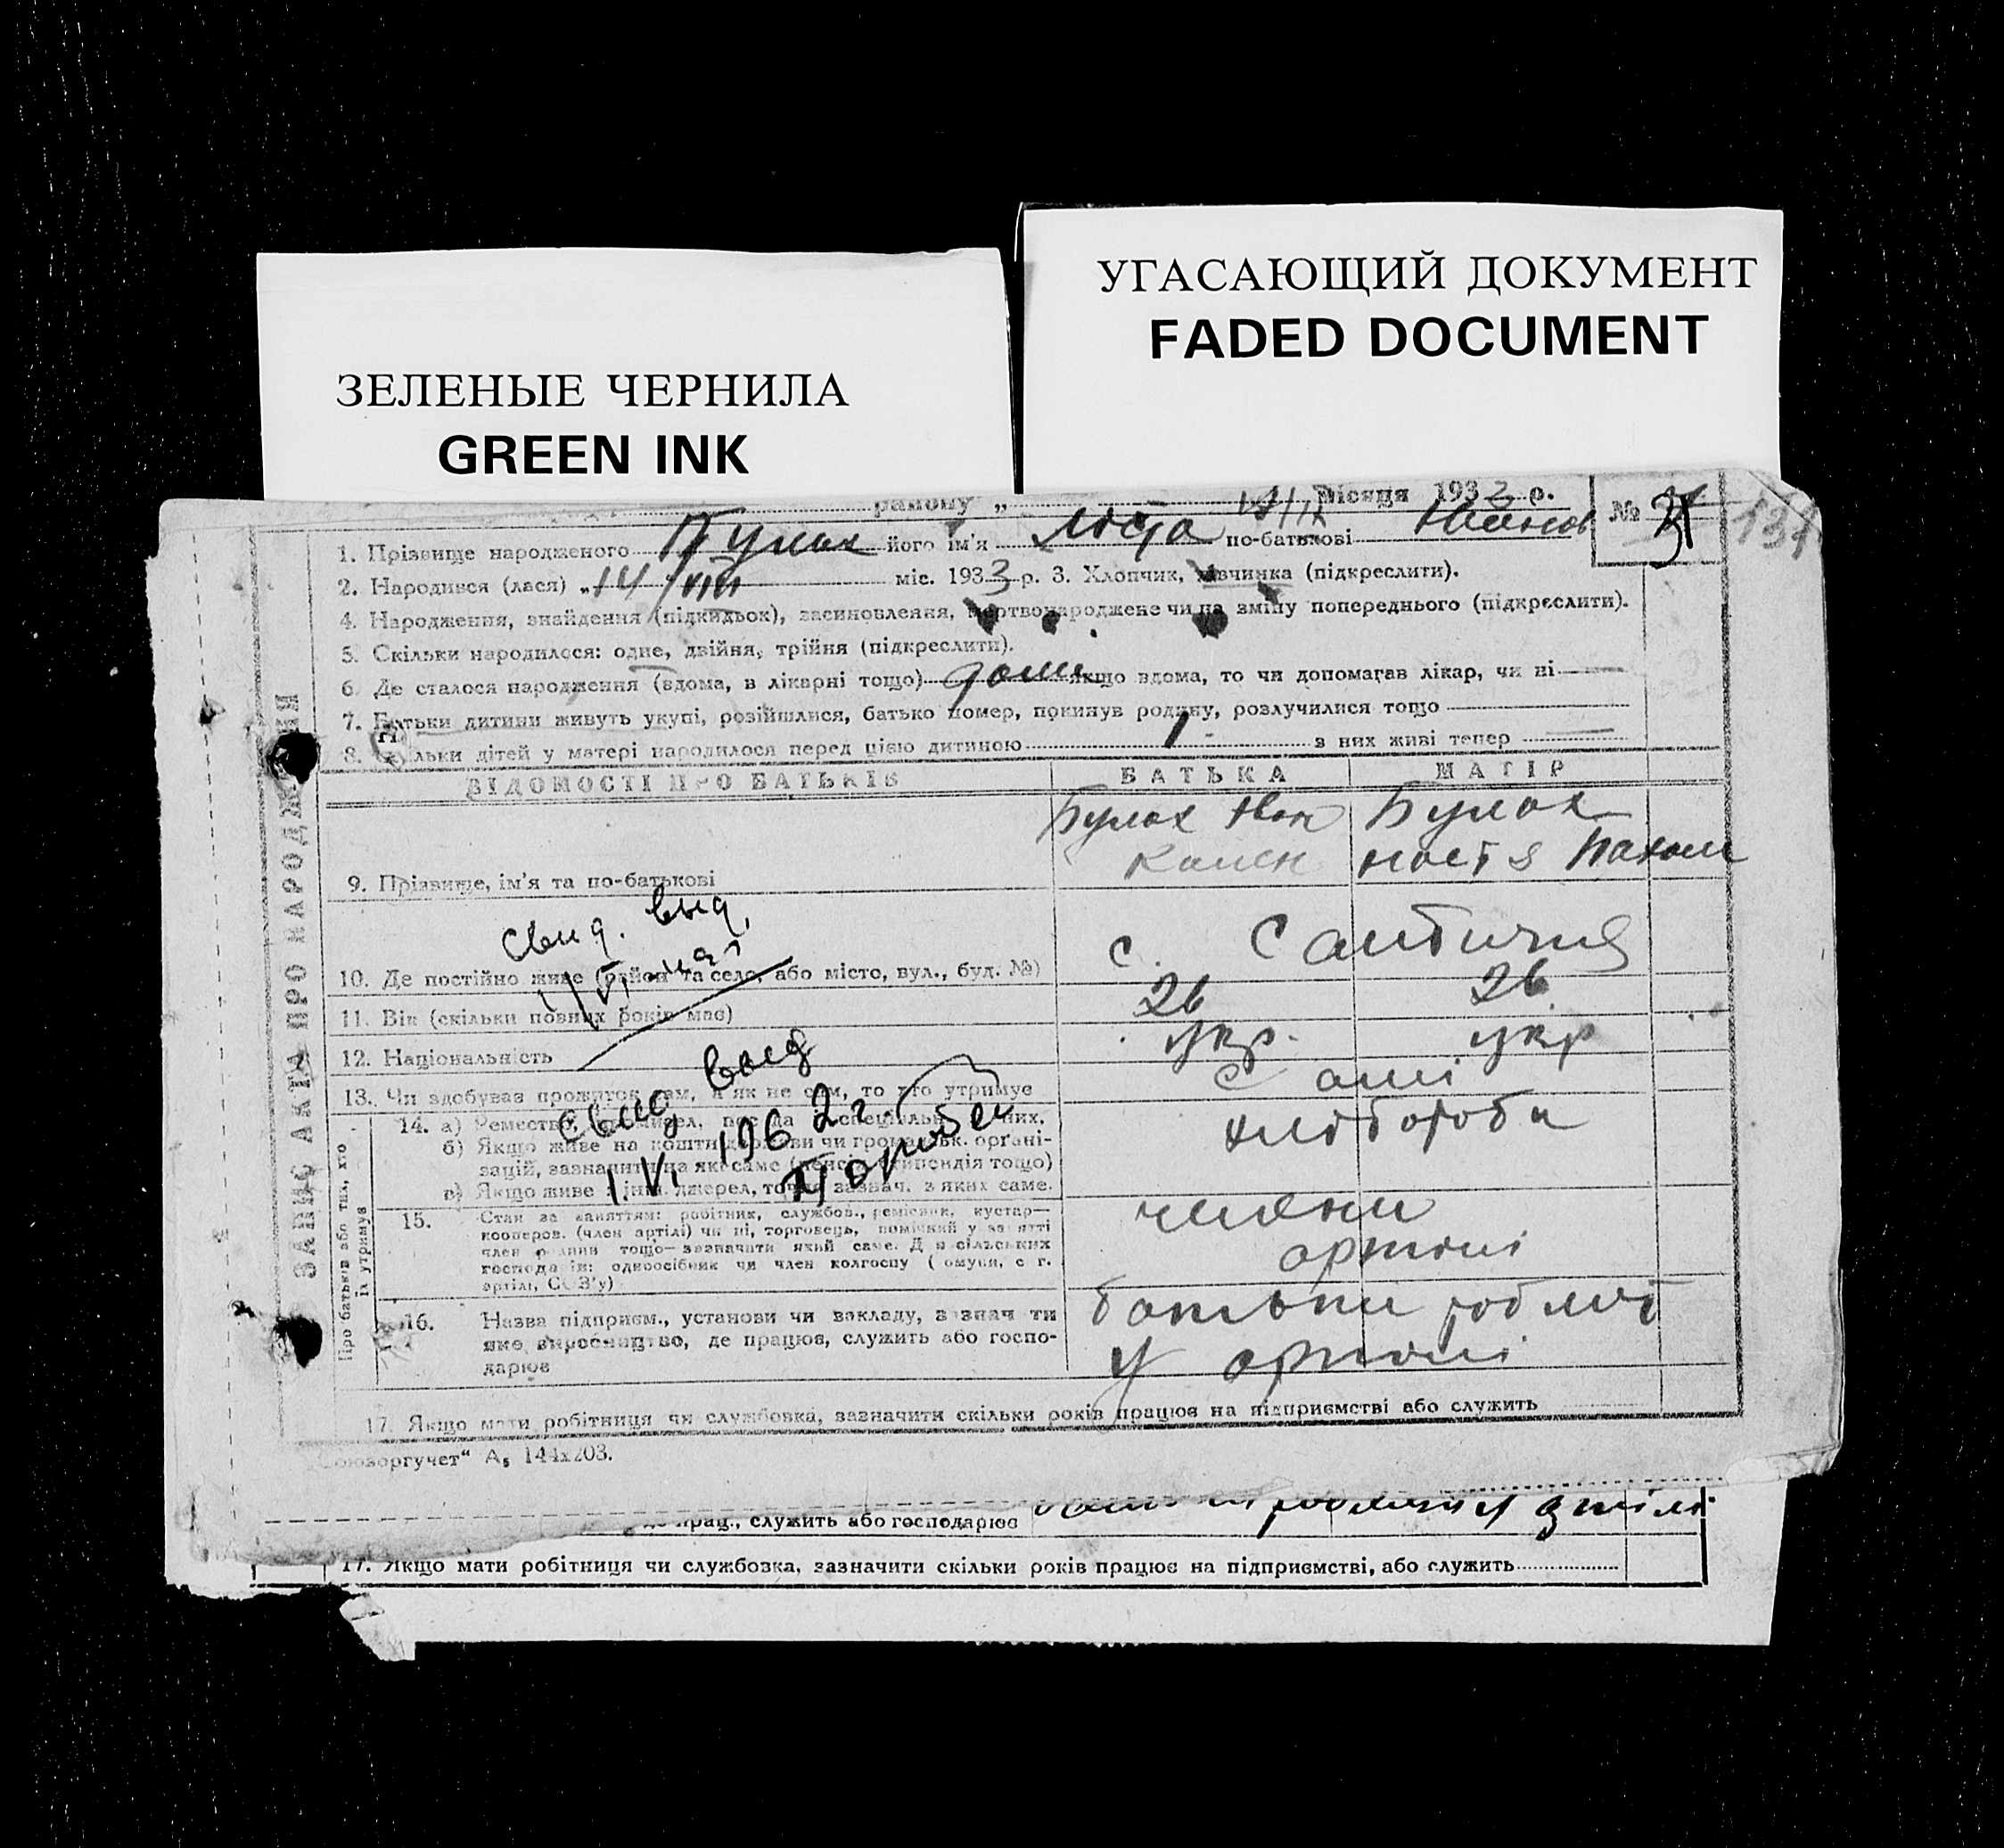 УГАСАЮЩИЙ ДОКУМЕНТ
FADED DOCUMENT
ЗЕЛЕНЫЕ ЧЕРНИЛА
GREEN INK
району „ місяця 1933 р.
№ 31
131
1. Прізвище народженого його ім'я по-батькові Іванов
2. Народився (лася) „14/VIII міс. 1933 р. 3. Хлопчик, дівчинка (підкреслити).
4. Народження, знайдення (підкидьок), засиновлення, мертвонароджене чи на зміну попереднього (підкреслити).
5. Скільки народилося: одне, двійня, трійня (підкреслити).
6. Де сталося народження (вдома, в лікарні тощо) дома якщо вдома, то чи допомагав лікар, чи ні
7. Батьки дитини живуть укупі, розійшлися, батько помер, покинув родину, розлучилися тощо
8. Скільки дітей у матері народилося перед цією дитиною 1 з них живі тепер
ЗАПИС АКТА ПРО НАРОДЖЕННЯ
ВІДОМОСТІ ПРО БАТЬКІВ БАТЬКА МАТІР
9. Прізвище, ім'я та по-батькові Булах Іван Булах
Настя Пахом
свид. выд.
10. Де постійно живе (район та село, або місто, вул., буд. №) с.
11. Вік (скільки повних років має) 26 26
12. Національність укр. укр
13. Чи здобуває прожиток сам, а як не сам, то хто утримує самі
Про батьків або тих, хто їх утримує
14. а) Ремество, промисел, посада чи спеціальність них. хлібороби
б) Якщо живе на кошти держави чи громадськ. органі-
зацій, зазначити на які саме (пенсія, стипендія тощо)
в) Якщо живе з інш. джерел, точно зазнач. з яких саме.
свид выд
1 VI 1962 г.
15. Стан за заняттям: робітник, службов., ремісник, кустар— члени
кооперов. (член артілі) чи ні, торговець, помічний у занятті артілі
член родини тощо—зазначити який саме. Для сільських
господарів: одноосібник чи член колгоспу (комуни, с г.
артілі, СОЗ'у)
16. Назва підприєм., установи чи закладу, зазначити батьки роблят
яке виробництво, де працює, служить або госпо- у артілі
дарює
17. Якщо мати робітниця чи службовка, зазначити скільки років працює на підприємстві або служить
„Союзоргучет“ А₅ 144х203.
де прац., служить або господарює
17. Якщо мати робітниця чи службовка, зазначити скільки років працює на підприємстві, або служить